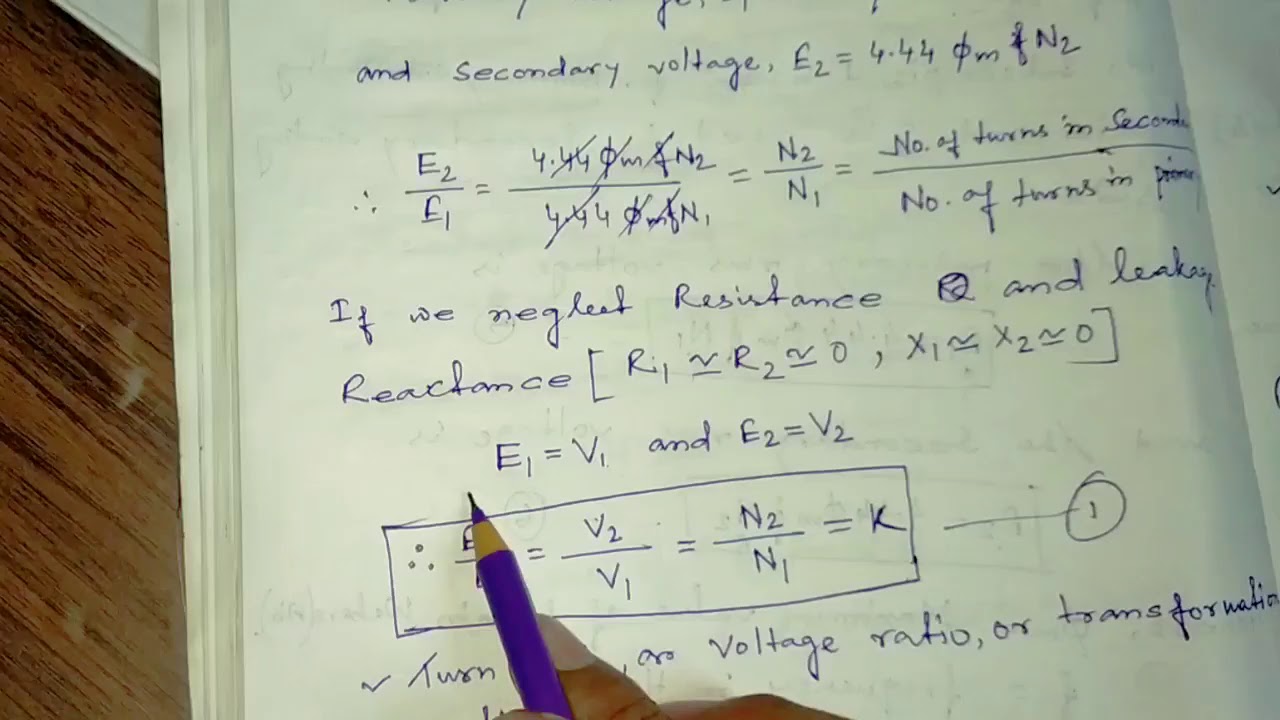 and secondary voltage, E₂ = 4.44 ϕm f N₂
∴ E₂/E₁ = 4.44 ϕm f N₂ / 4.44 ϕm f N₁ = N₂/N₁ = No. of turns in / No. of turns in
If we neglect Resistance and
Reactance [ R₁ ≃ R₂ ≃ 0 ; X₁ ≃ X₂ ≃ 0 ]
E₁ = V₁ and E₂ = V₂
∴ = V₂/V₁ = N₂/N₁ = K — 1
✓ Turn , or Voltage ratio, or transformation